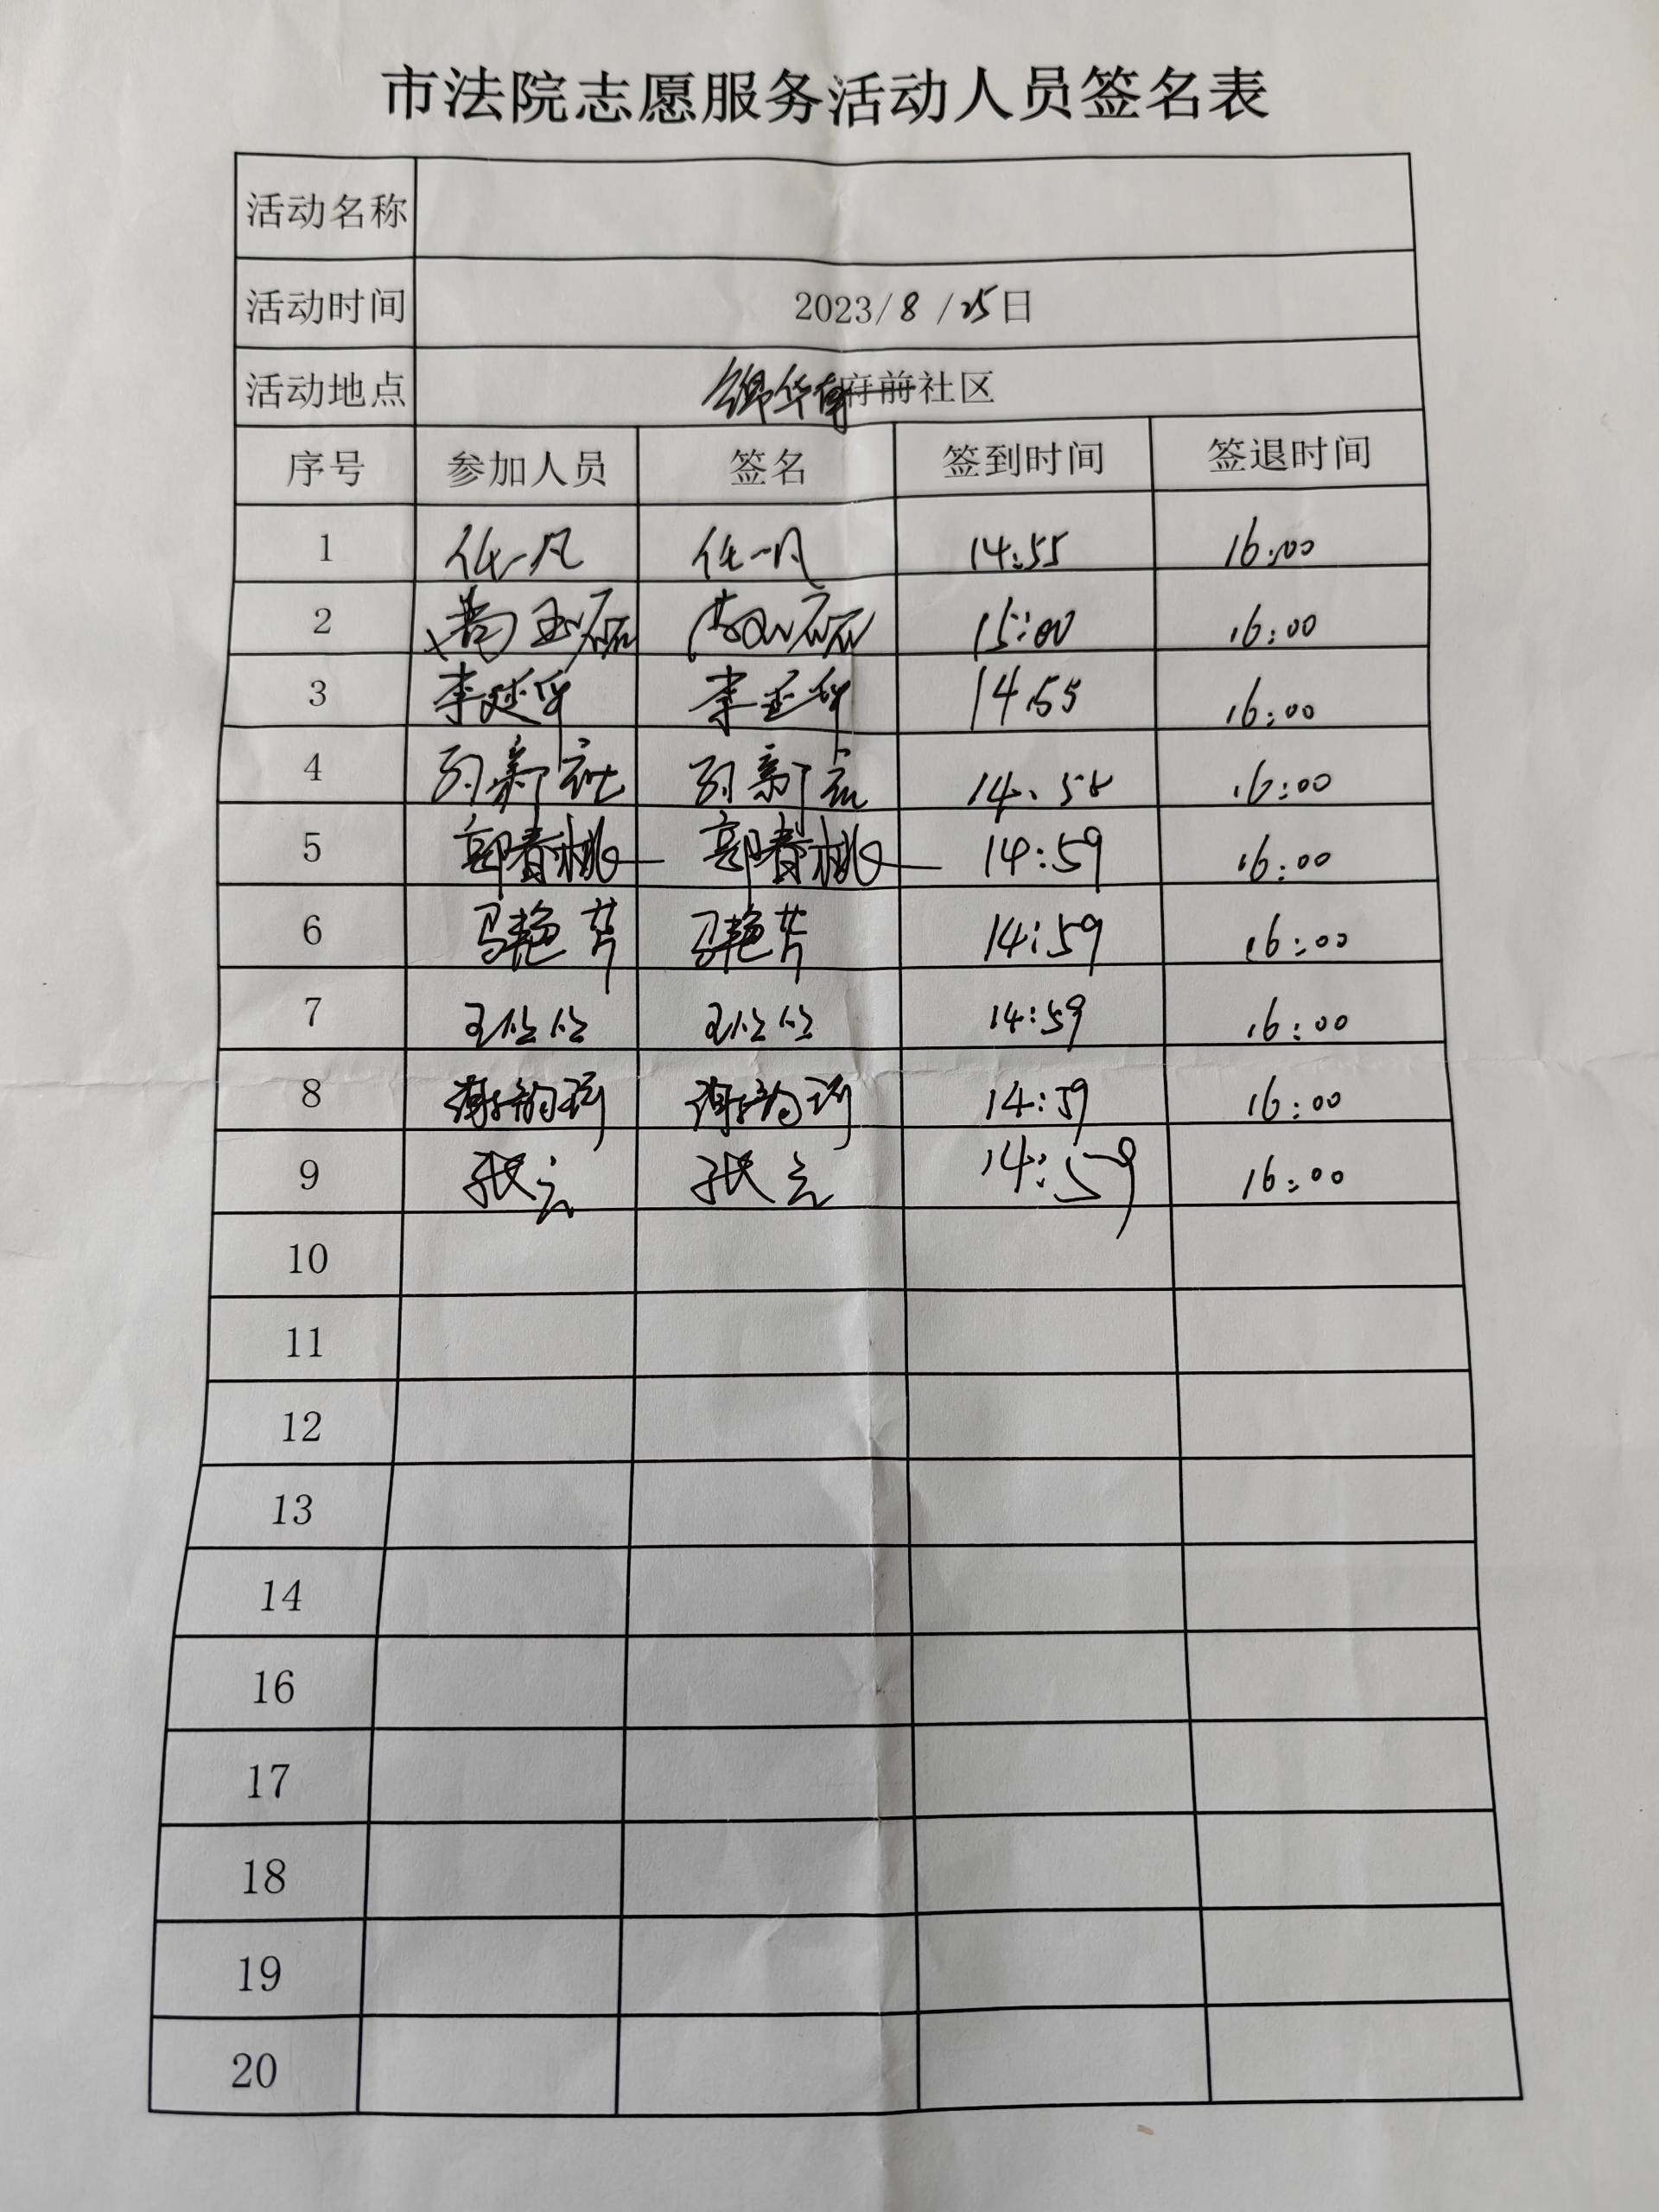 市法院志愿服务活动人员签名表
活动名称
活动时间 2023/8/25日
活动地点 锦华府前社区
序号 参加人员 签名 签到时间 签退时间
1 任一凡 任一凡 14:55 16:00
2 15:00 16:00
3 李 李 14:55 16:00
4 16:00
5 郭春桃 郭春桃 14:59 16:00
6 马艳芳 马艳芳 14:59 16:00
7 王 王 14:59 16:00
8 谢 谢 14:59 16:00
9 张 张 14:59 16:00
10
11
12
13
14
16
17
18
19
20